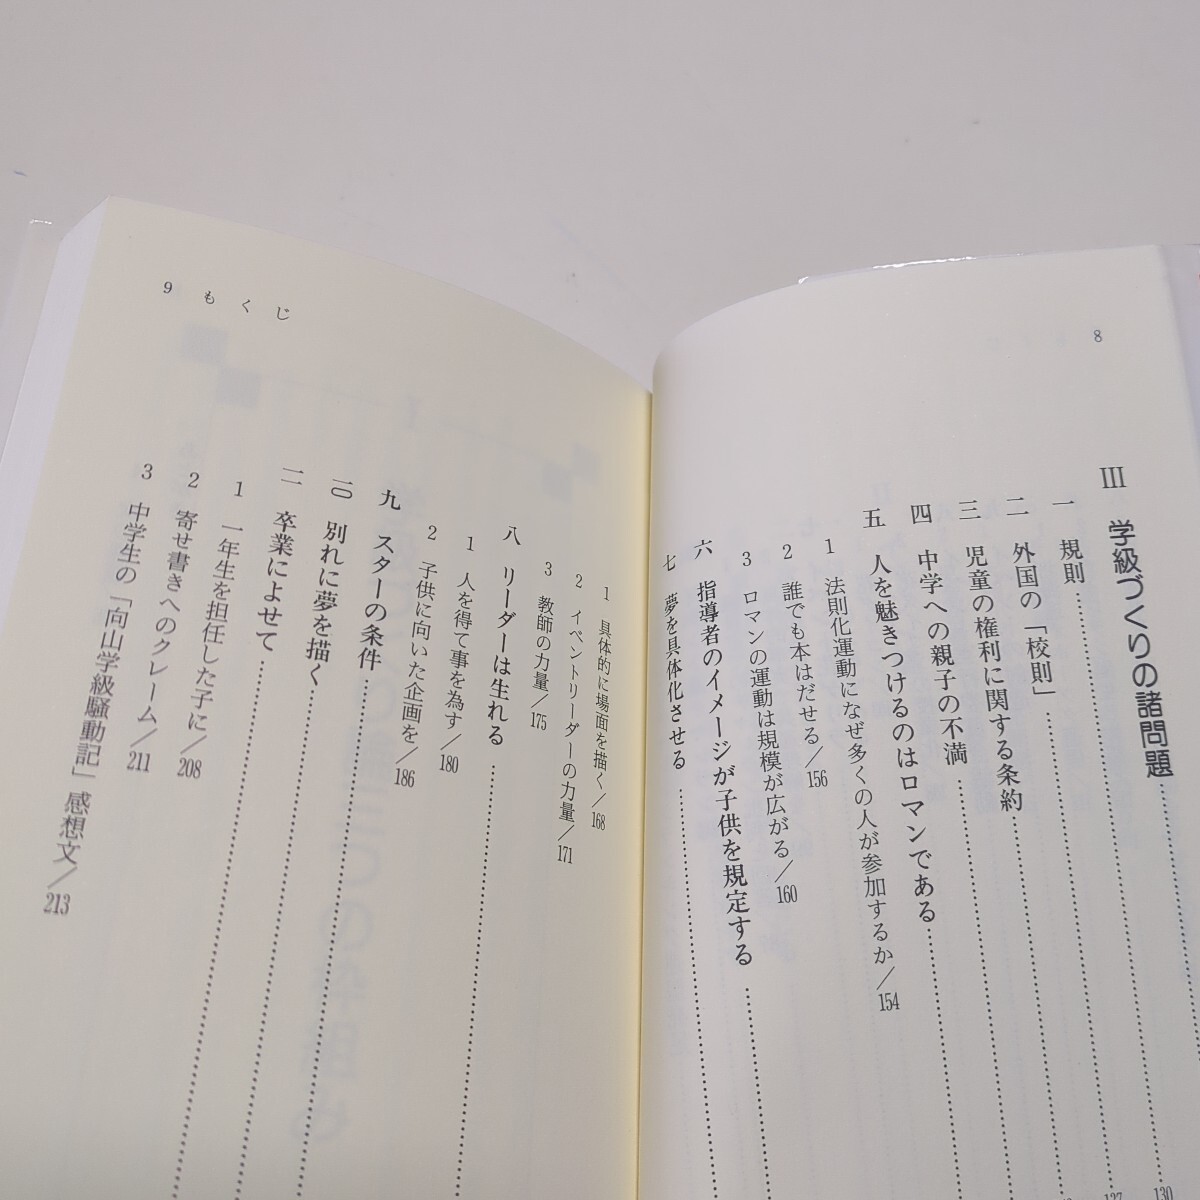 8
III 学級づくりの諸問題
一 規則
二 外国の「校則」
三 児童の権利に関する条約
四 中学への親子の不満
五 人を魅きつけるのはロマンである
1 法則化運動になぜ多くの人が参加するか/154
2 誰でも本はだせる/156
3 ロマンの運動は規模が広がる/160
六 指導者のイメージが子供を規定する
七 夢を具体化させる
130
137
9 もくじ
1 具体的に場面を描く/168
2 イベントリーダーの力量/171
3 教師の力量/175
八 リーダーは生れる
1 人を得て事を為す/180
2 子供に向いた企画を/186
九 スターの条件
一〇 別れに夢を描く
一一 卒業によせて
1 一年生を担任した子に/208
2 寄せ書きへのクレーム/211
3 中学生の「向山学級騒動記」感想文/213